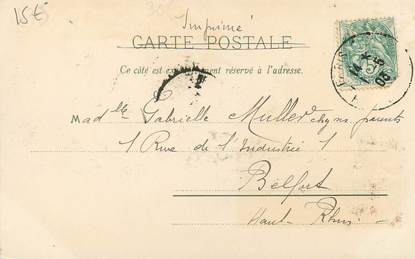 15€
Imprimé
CARTE POSTALE
Ce côté est exclusivement réservé à l'adresse.
Madelle Gabrielle Muller chez ses parents
1 Rue de l'Industrie 1
Belfort
Haut-Rhin